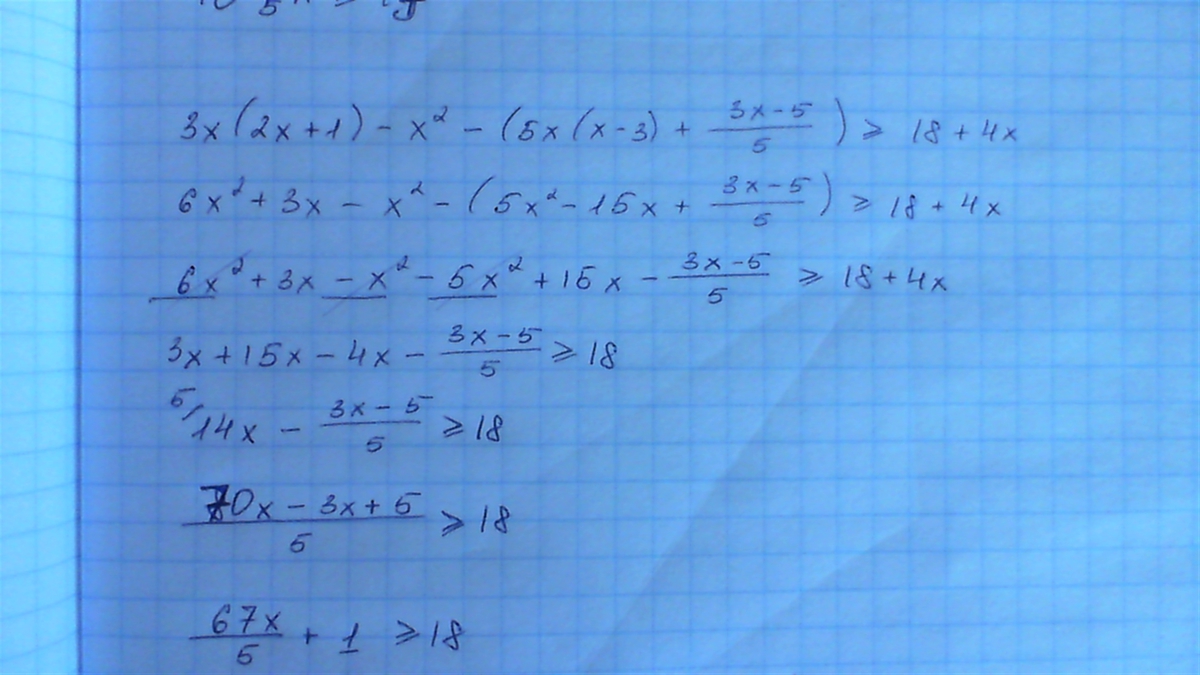 3x(2x+1) - x² - (5x(x-3) + (3x-5)/5) ⩾ 18 + 4x
6x² + 3x - x² - (5x² - 15x + (3x-5)/5) ⩾ 18 + 4x
6x² + 3x - x² - 5x² + 15x - (3x-5)/5 ⩾ 18 + 4x
3x + 15x - 4x - (3x-5)/5 ⩾ 18
5/ 14x - (3x-5)/5 ⩾ 18
(70x - 3x + 5)/5 ⩾ 18
67x/5 + 1 ⩾ 18